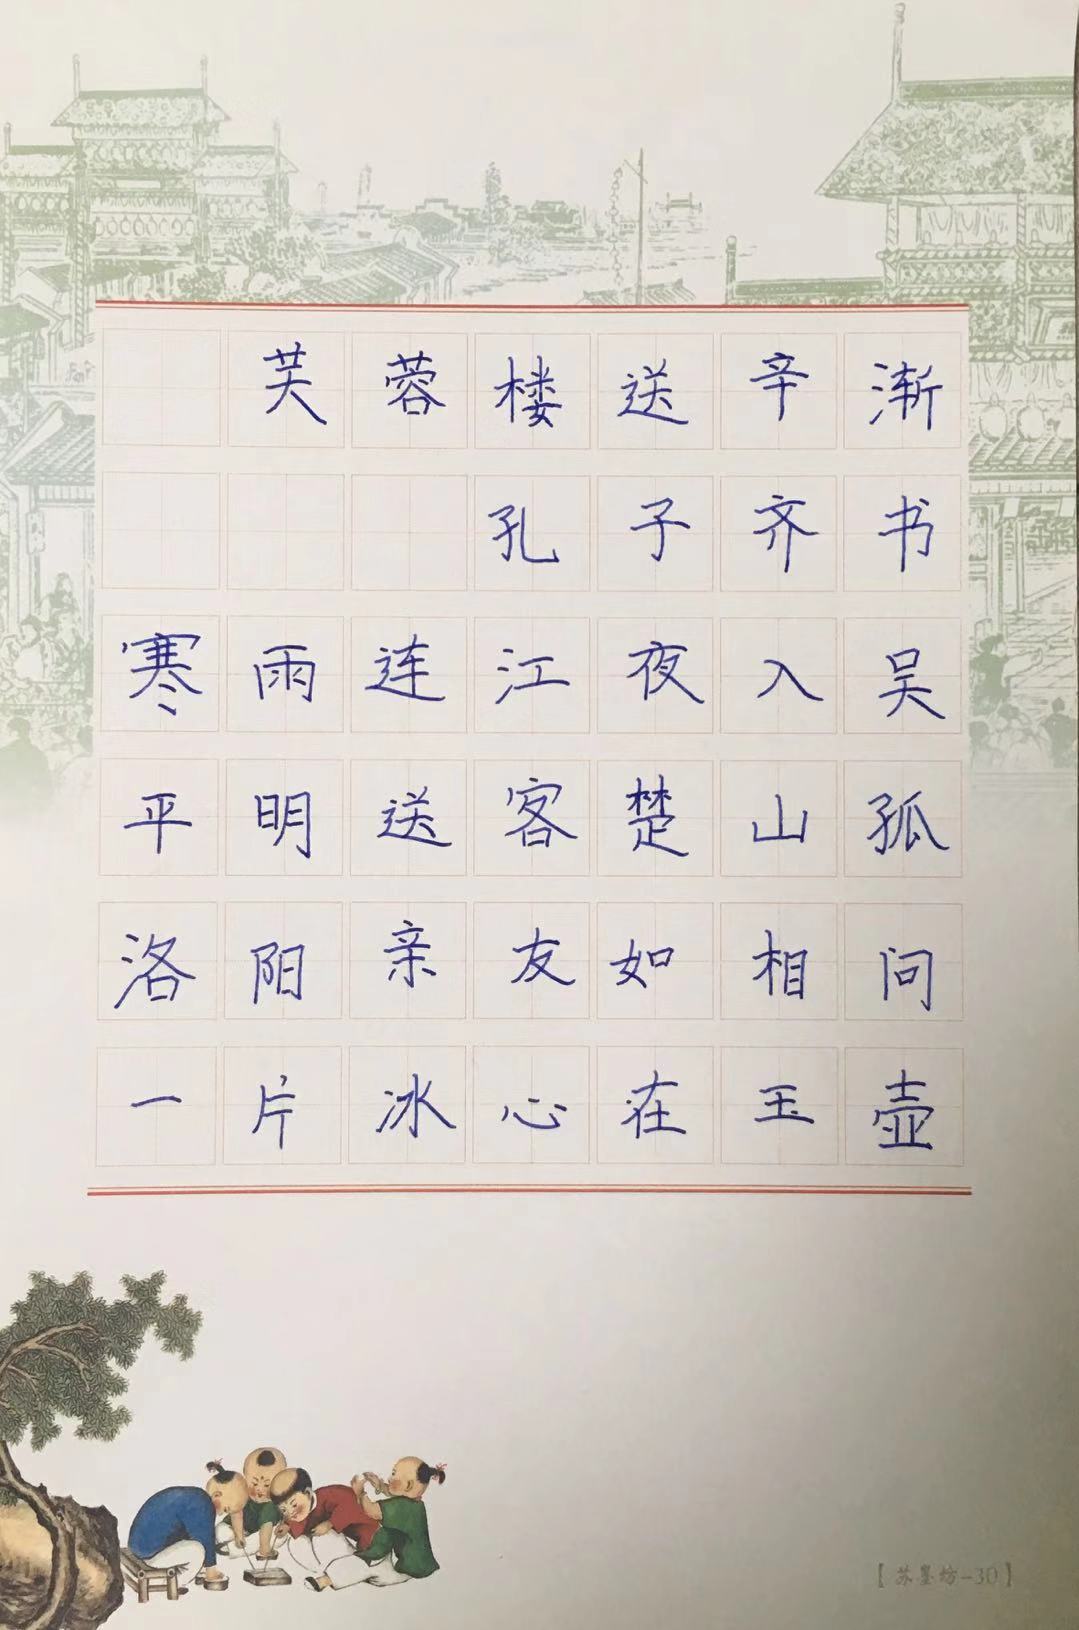 芙蓉楼送辛渐
孔子齐书
寒雨连江夜入吴
平明送客楚山孤
洛阳亲友如相问
一片冰心在玉壶
【苏墨坊-30】